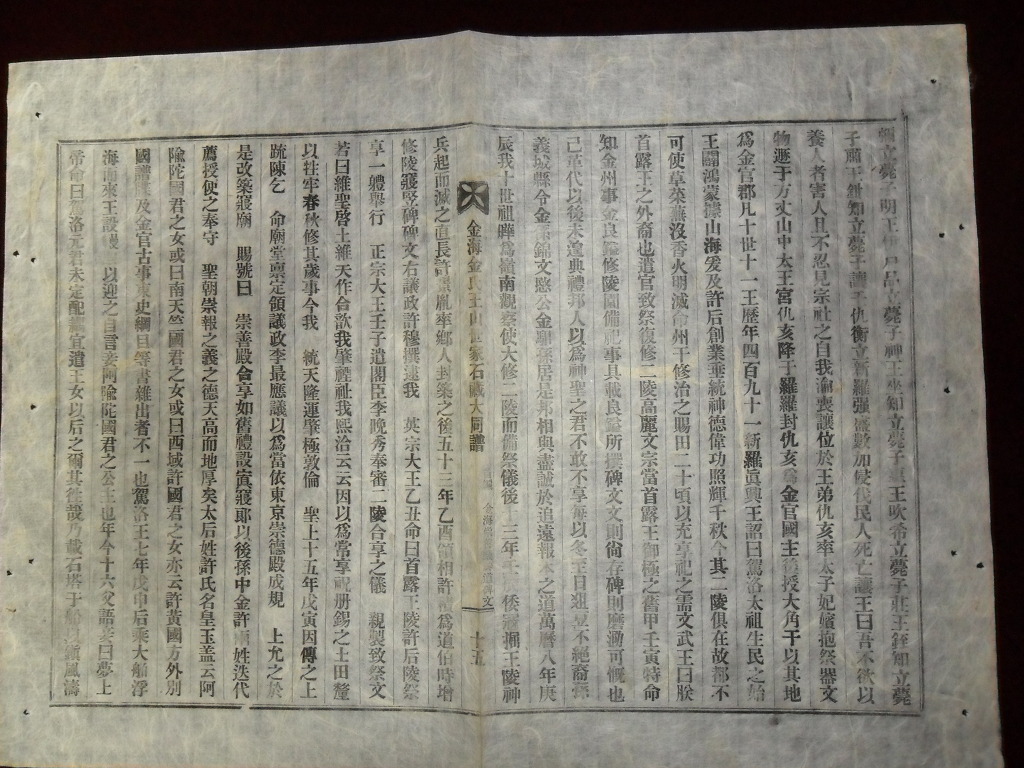 立薨子明王伊尸品立薨子神王坐知立薨子王吹希立薨子莊王銍知立薨
子肅王鉗知立薨子讓王仇衡立新羅强盛數加侵伐民人死亡讓王曰吾不欲以
養人者害人且不忍見宗社之自我淪喪讓位於王弟仇亥率太子妃嬪抱祭器文
物遯于方丈山中太王宮仇亥降于羅羅封仇亥爲金官國主後授大角干以其地
爲金官郡凡十世十一王歷年四百九十一新羅眞興王詔曰駕洛太祖生民之始
王闢鴻蒙據山海爰及許后創業垂統神德偉功照輝千秋今其二陵俱在故都不
可使草菜蕪沒香火明滅命州干修治之賜田二十頃以充享祀之需文武王曰朕
首露王之外裔也遣官致祭復修二陵高麗文宗當首露王御極之舊甲壬寅特命
知金州事金良鎰修陵園備祀事具載良鎰所撰碑文文則尙存碑則磨泐可慨也
已革代以後未遑典禮邦人以爲神聖之君不敢不享每以冬至日俎豆不絕裔孫
義城縣令金係錦文愍公金馹孫居是邦相與盡誠於追遠報本之道萬曆八年庚
辰我十世祖曄爲嶺南觀察使大修二陵而備祭儀後十三年壬辰倭寇掘王陵神
金海金氏王山世家石藏大同譜
十五
兵起而滅之直長許景胤率鄕人封築之後五十二年乙酉領相許積爲道伯時增
修陵寢竪碑碑文右議政許穆撰逮我 英宗大王乙丑命曰首露王陵許后陵祭
享一軆舉行 正宗大王壬子遣閣臣李晩秀奉審二陵合享之儀 親製致祭文
若曰維聖啓土維天作合歆我肇禋祉我熙洽云云因以爲常享祝册錫之土田釐
以牲牢春秋修其歲事今我 統天隆運肇極敦倫 聖上十五年戊寅因傳之上
疏陳乞 命廟堂禀定領議政李最應議以爲當依東京崇德殿成規 上允之於
是改築寢廟 賜號曰 崇善殿合享如舊禮設寅寢郞以後孫中金許兩姓迭代
薦授使之奉守 聖朝崇報之義之德天高而地厚矣太后姓許氏名皇玉盖云阿
隃陀國君之女或曰南天竺國君之女或曰西域許國君之女亦云許黃國方外別
國譜牒及金官古事東史綱目等書雜出者不一也駕洛王七年戊申后乘大船浮
海而來王設幔 以迎之自言妾阿隃陀國君之公主也年今十六父語妾曰夢上
帝命曰駕洛元君未定配耦宜遣王女以后之爾其往哉乃載石塔于船以鎭風濤